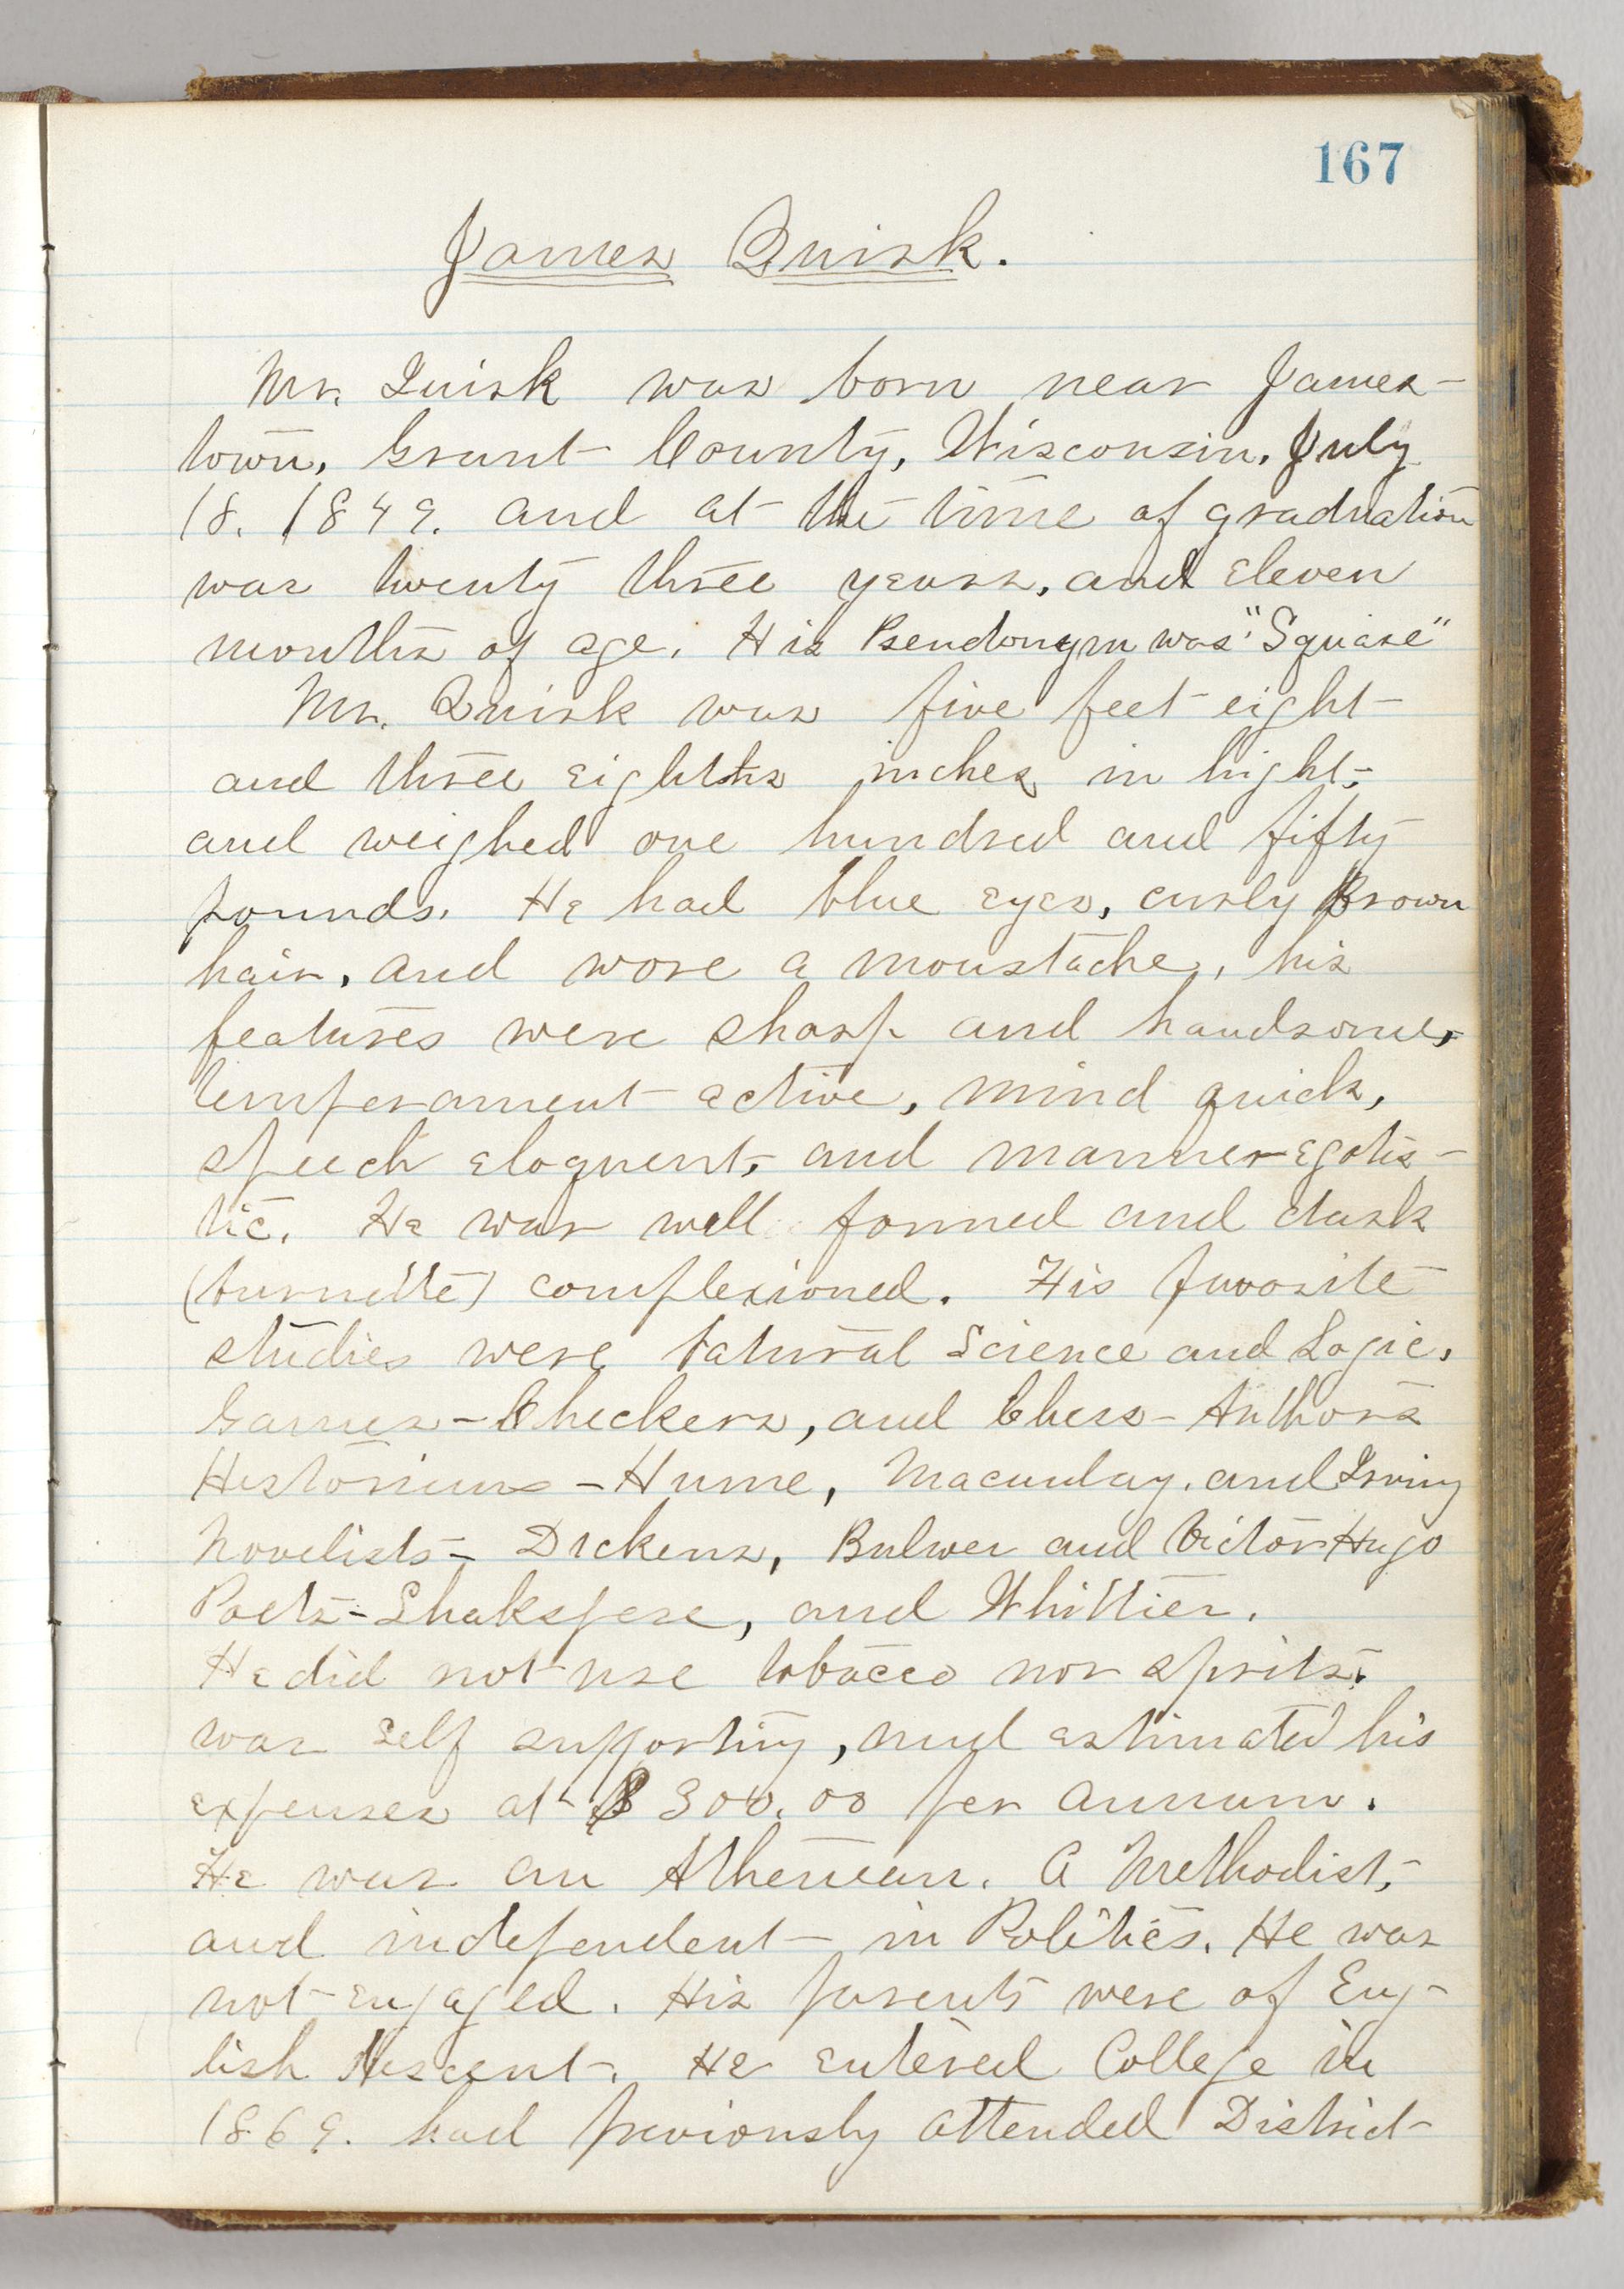 167
James Quirk.
Mr. Quirk was born near James-
town, Grant County, Wisconsin, July
18. 1849. and at the time of graduation
was twenty three years, and eleven
months of age. His Pseudonym was "Square"
Mr. Quirk was five feet eight
and three eighths inches in hight,
and weighed one hundred and fifty
pounds. He had blue eyes, curly Brown
hair, and wore a moustache, his
features were sharp and handsome,
temperament active, mind quick,
speech eloquent, and manner egotis-
tic. He was well formed and dark
(burnette) complexioned. His favorite
studies were Natural Science and Logic,
Games - Checkers, and Chess - Authors
Historians - Hume, Macaulay, and Irving
Novelists - Dickens, Bulwer and Victor Hugo
Poets - Shakspere, and Whittier.
He did not use tobacco nor sprits.
was self supporting, and estimated his
expenses at $300.00 per annum.
He was an Athenean. A Methodist,
and independent in Politics. He was
not engaged. His parents were of Eng-
lish Descent. He entered College in
1869. had previously attended District